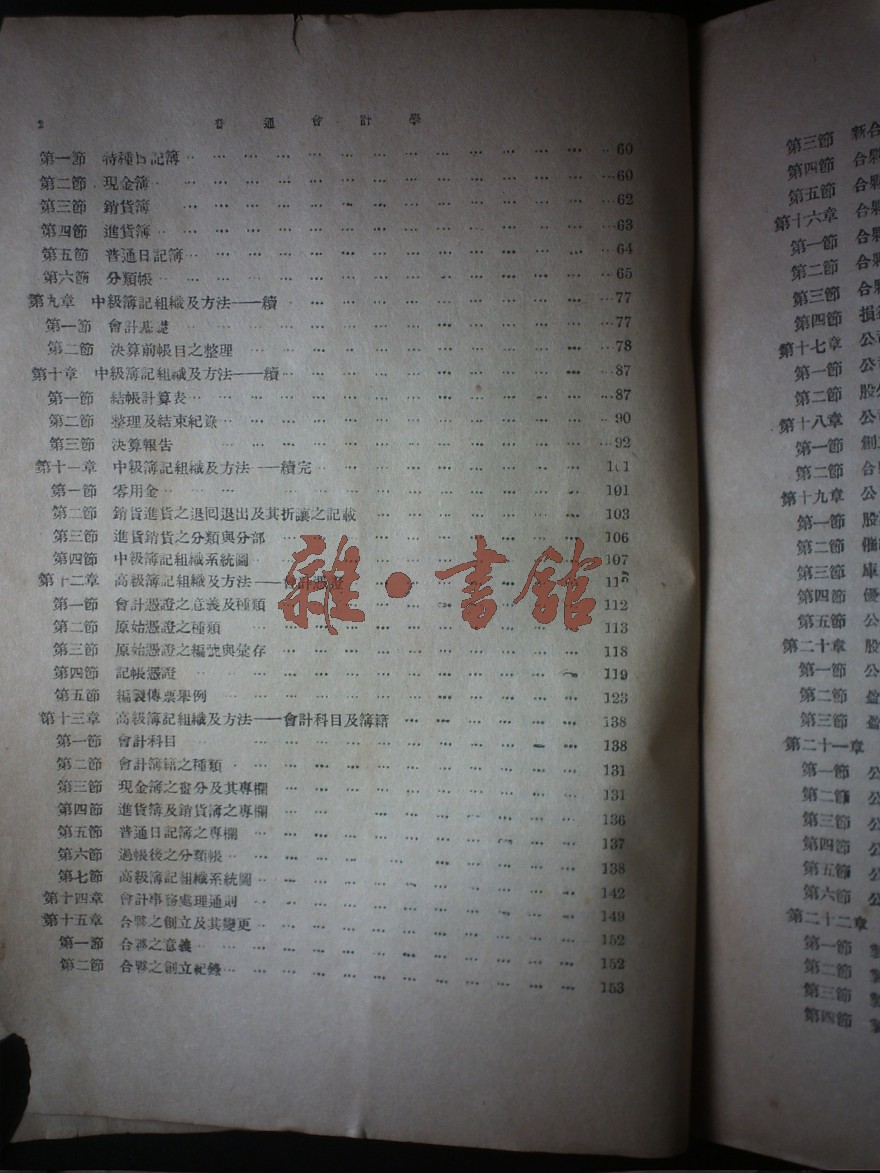 2 普通會計學
第一節 特種日記簿 60
第二節 現金簿 60
第三節 銷貨簿 62
第四節 進貨簿 63
第五節 普通日記簿 64
第六節 分類帳 65
第九章 中級簿記組織及方法——續 77
第一節 會計基礎 77
第二節 決算前帳目之整理 78
第十章 中級簿記組織及方法——續 87
第一節 結帳計算表 87
第二節 整理及結束紀錄 90
第三節 決算報告 92
第十一章 中級簿記組織及方法——續完 101
第一節 零用金 101
第二節 銷貨進貨之退回退出及其折讓之記載 103
第三節 進貨銷貨之分類與分部 106
第四節 中級簿記組織系統圖 107
第十二章 高級簿記組織及方法——會計憑證
第一節 會計憑證之意義及種類 112
第二節 原始憑證之種類 113
第三節 原始憑證之編號與彙存 118
第四節 記帳憑證 119
第五節 編製傳票舉例 123
第十三章 高級簿記組織及方法——會計科目及簿籍 138
第一節 會計科目 138
第二節 會計簿籍之種類 131
第三節 現金簿之畫分及其專欄 131
第四節 進貨簿及銷貨簿之專欄 136
第五節 普通日記簿之專欄 137
第六節 過帳後之分類帳 138
第七節 高級簿記組織系統圖 142
第十四章 會計事務處理通則 149
第十五章 合夥之創立及其變更 152
第一節 合夥之意義 152
第二節 合夥之創立紀錄 153
雜·書館
第三節 新合
第四節 合夥
第五節 合夥
第十六章 合夥
第一節 合夥
第二節 合夥
第三節 合夥
第四節 損益
第十七章 公司
第一節 公司
第二節 股份
第十八章 公司
第一節 創立
第二節 合夥
第十九章 公
第一節 股
第二節 催
第三節 庫
第四節 優
第五節 公
第二十章 股
第一節 公
第二節 盈
第三節 盈
第二十一章
第一節 公
第二節 公
第三節 公
第四節 公
第五節 公
第六節 公
第二十二章
第一節
第二節
第三節
第四節